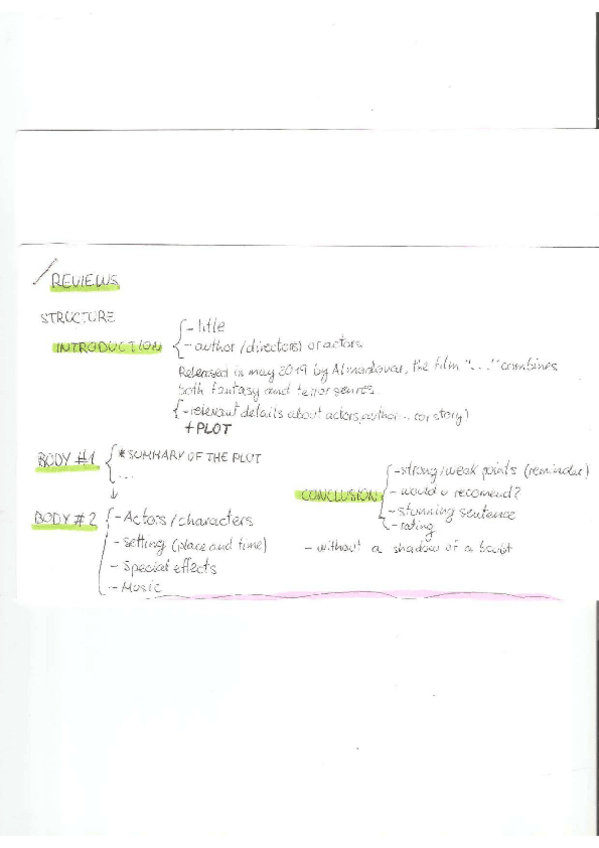 /REVIEWS
STRUCTURE
INTRODUCTION
- title
- author/directors) or actors
Released in may 2019 by Almodovar, the film "..." combines
both fantasy and terror genres.
- relevant details about actors, author... (or story)
+ PLOT
BODY #1
* SUMMARY OF THE PLOT
...
BODY #2
- Actors/characters
- setting (place and time)
- Special effects
- Music
CONCLUSION
- strong/weak points (reminder)
- would u recomend?
- stunning sentence
- rating
- without a shadow of a